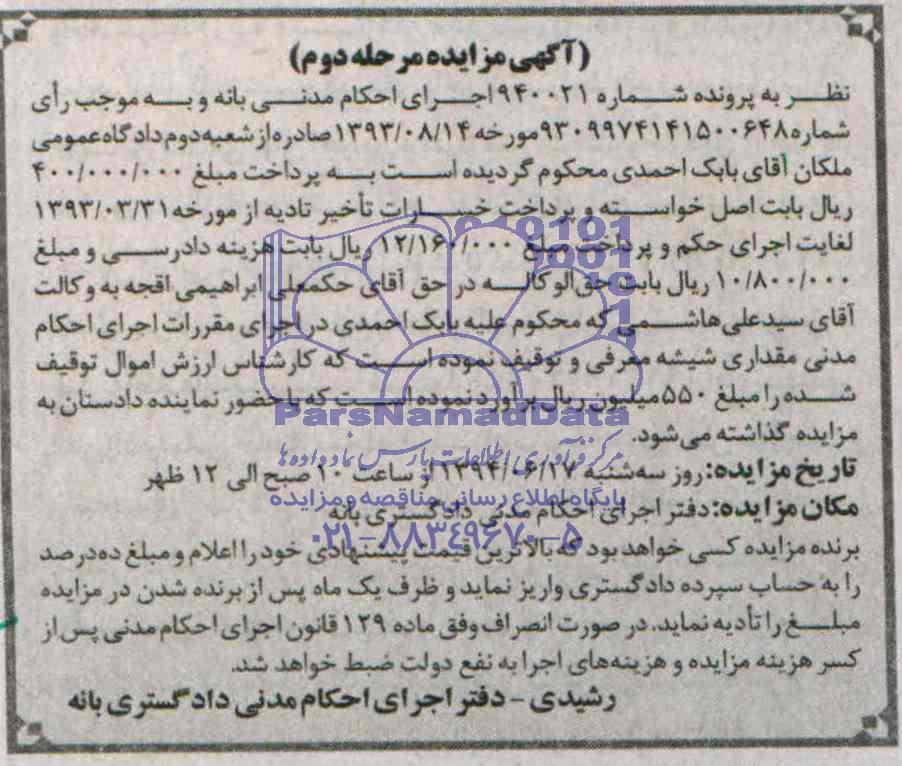 (آگهی مزایده مرحله دوم)
نظر به پرونده شماره ۹۴۰۰۲۱ اجرای احکام مدنی بانه و به موجب رأی
شماره ۹۳۰۹۹۷۴۱۴۱۵۰۰۶۴۸ مورخه ۱۳۹۳/۰۸/۱۴ صادره از شعبه دوم دادگاه عمومی
ملکان آقای بابک احمدی محکوم گردیده است به پرداخت مبلغ ۴۰۰/۰۰۰/۰۰۰
ریال بابت اصل خواسته و پرداخت خسارات تأخیر تادیه از مورخه ۱۳۹۳/۰۳/۳۱
لغایت اجرای حکم و پرداخت مبلغ ۱۲/۱۶۰/۰۰۰ ریال بابت هزینه دادرسی و مبلغ
۱۰/۸۰۰/۰۰۰ ریال بابت حق‌الوکاله در حق آقای حکمعلی ابراهیمی اقجه به وکالت
آقای سیدعلی هاشمی که محکوم علیه بابک احمدی در اجرای مقررات اجرای احکام
مدنی مقداری شیشه معرفی و توقیف نموده است که کارشناس ارزش اموال توقیف
شده را مبلغ ۵۵۰ میلیون ریال برآورد نموده است که با حضور نماینده دادستان به
مزایده گذاشته می‌شود.
تاریخ مزایده: روز سه‌شنبه ۱۳۹۴/۰۶/۱۷ از ساعت ۱۰ صبح الی ۱۲ ظهر
مکان مزایده: دفتر اجرای احکام مدنی دادگستری بانه
برنده مزایده کسی خواهد بود که بالاترین قیمت پیشنهادی خود را اعلام و مبلغ ده درصد
را به حساب سپرده دادگستری واریز نماید و ظرف یک ماه پس از برنده شدن در مزایده
مبلغ را تأدیه نماید. در صورت انصراف وفق ماده ۱۲۹ قانون اجرای احکام مدنی پس از
کسر هزینه مزایده و هزینه‌های اجرا به نفع دولت ضبط خواهد شد.
رشیدی - دفتر اجرای احکام مدنی دادگستری بانه
ParsNamadData
مرکز فرآوری اطلاعات پارس نماد داده ها
پایگاه اطلاع رسانی مناقصه و مزایده
۰۲۱-۸۸۳۴۹۶۷۰-۵